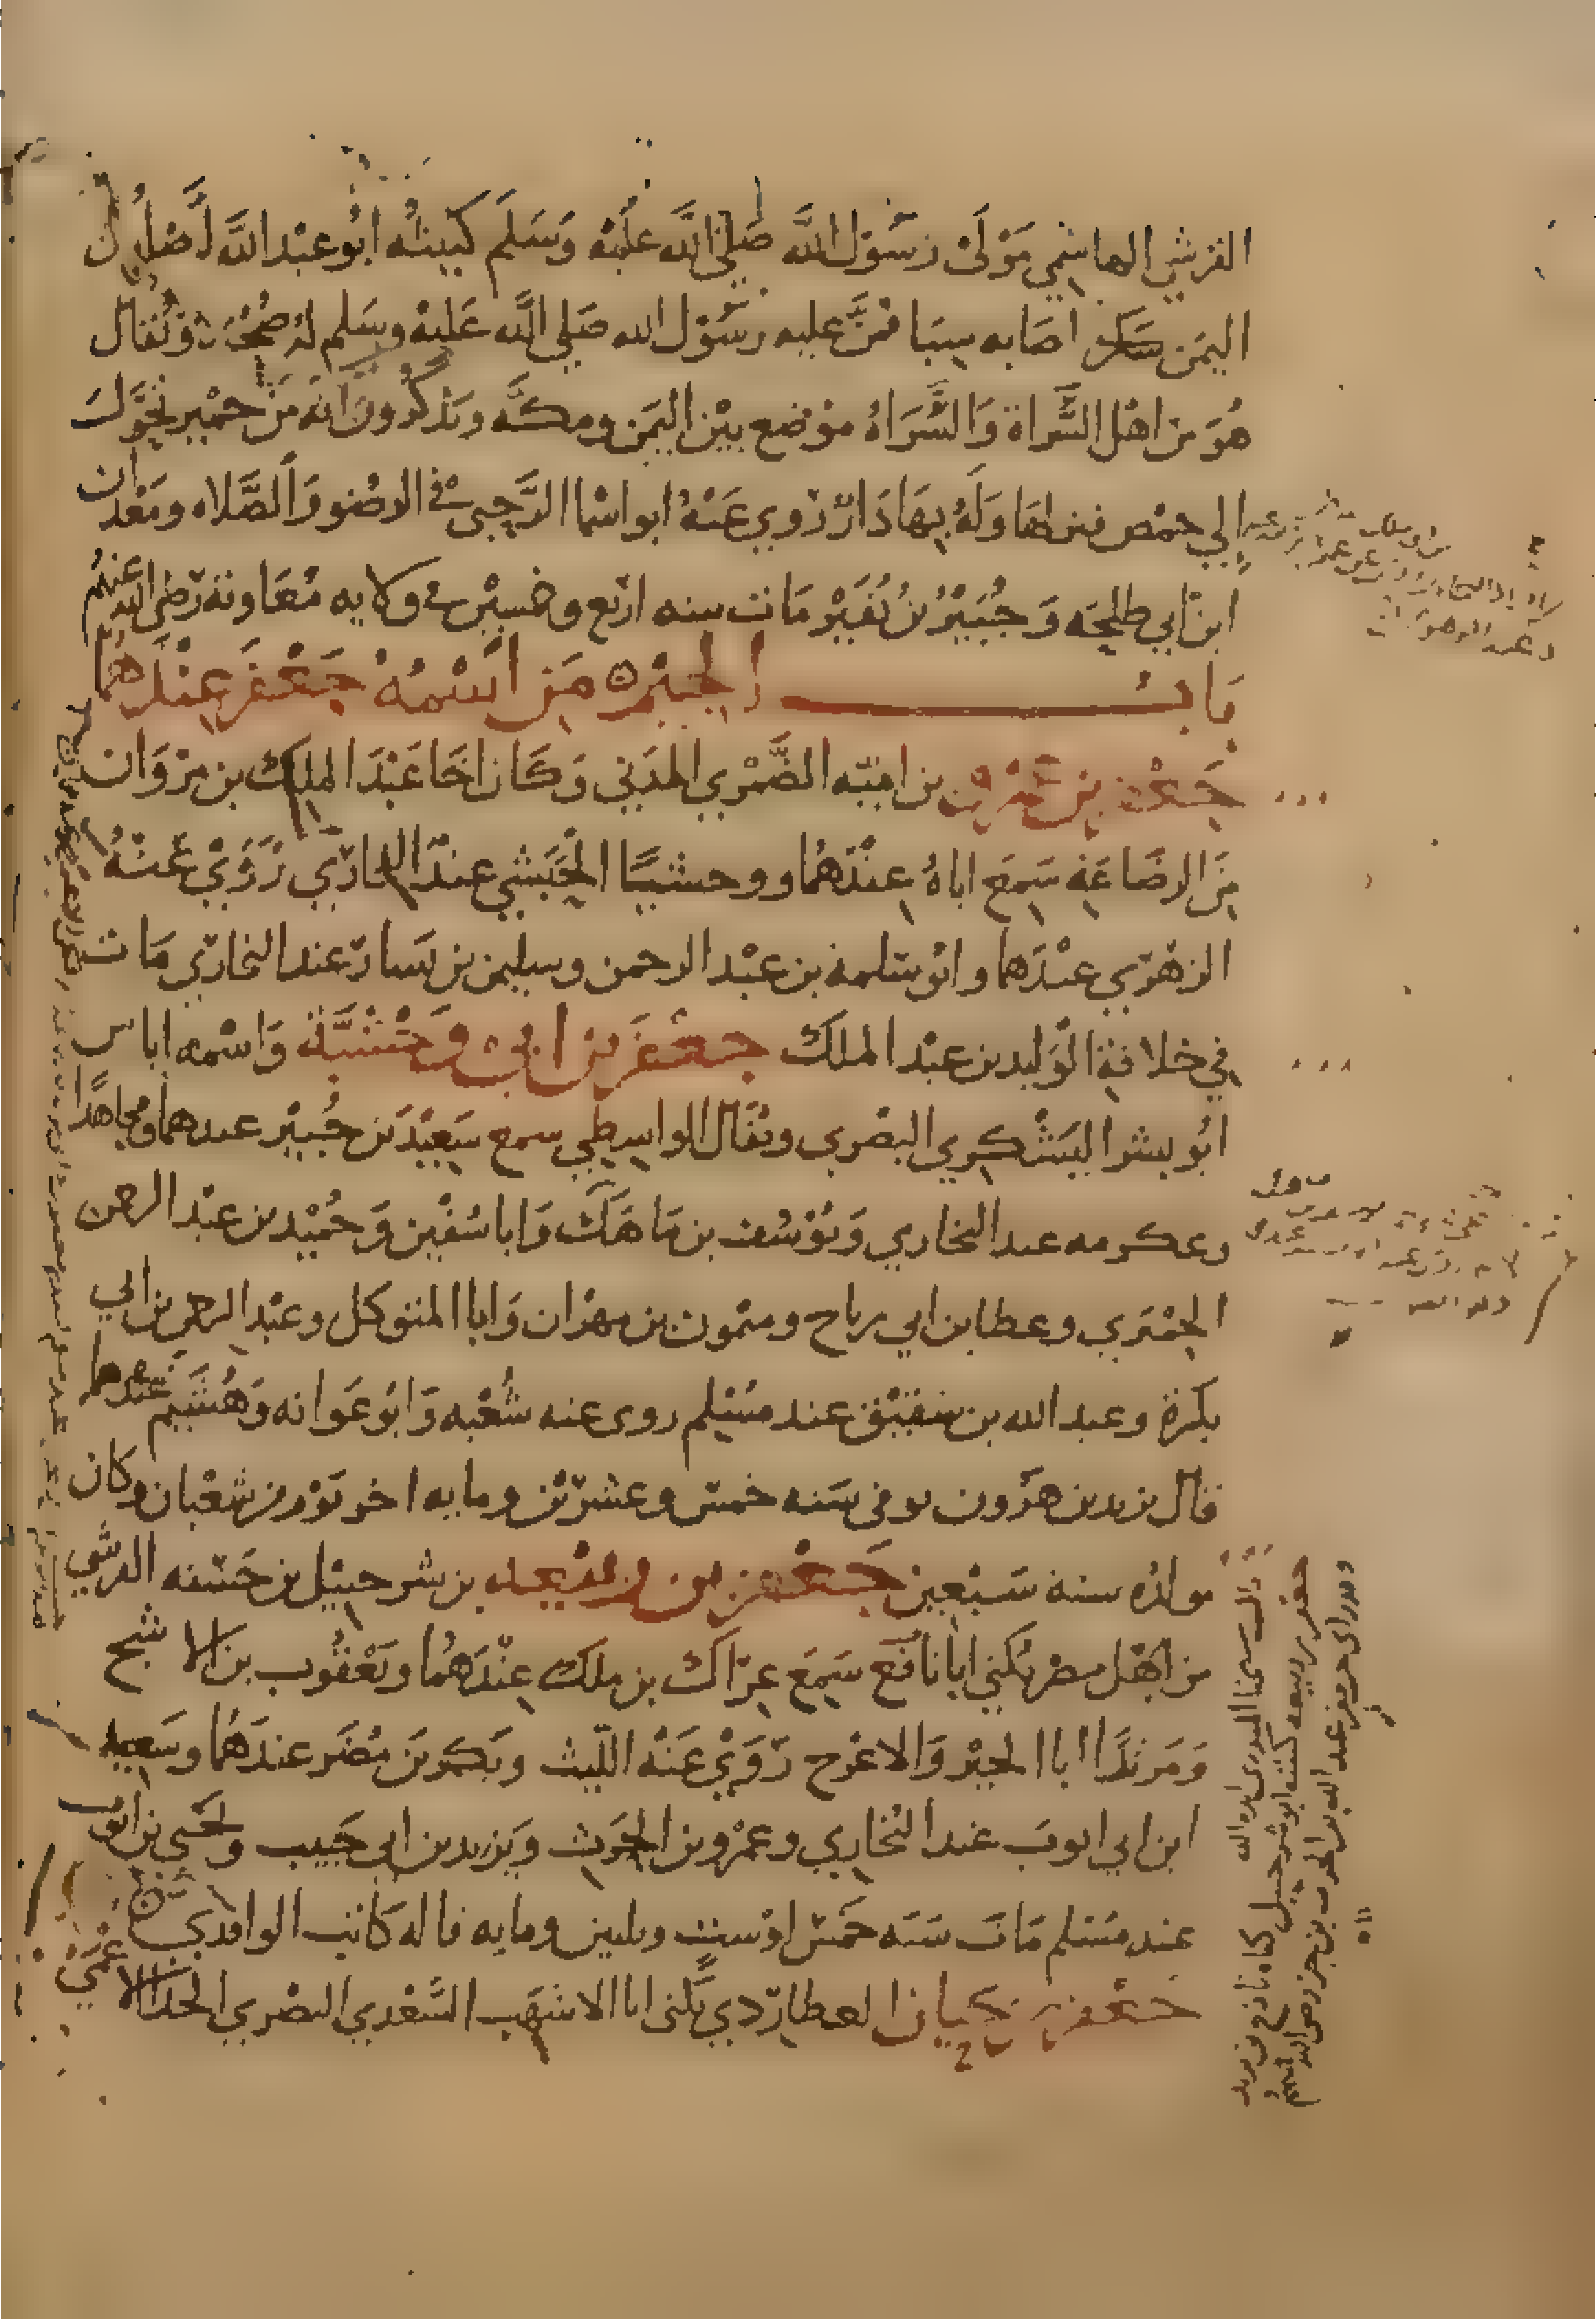 القرشي الهاشمي مَوْلَى رَسُوْل اللَّه صَلَّى اللَّه عَلَيْه وَسَلَمَ كنيتُه ابُو عبْد اللَّه اَصْلُهُ من
اليمَن اصَابه سِبَا فمَنَّ عليه رسُوْل الله صَلى اللَّه عَليْه وسَلم لهُ صُحْبَة ويُقال
هُوَ من اهْل السَّراة وَالسَّرَاهُ موْضع بيْن اليمَن ومكَّه ويَذكُرونَ انَه مَنْ حمْير تحَوَّلَ
الي حمْص فنزلهَا وَلَهُ بهَا دَارٌ رَوي عَنهُ ابو اسْما الرَّحَبى في الوضُو وَالصَّلاه ومَعْدان
ابن ابي طلحَه وَجُبَيْرُ بنُ نُفَيْر مَات سنه ارْبَع وخمسِيْن في ولايه مُعَاونة رَضي الله عنهُم
بَابُ الجيْم مَن اسْمُهُ جَعْفَر عِنْدَهُمَا
جَعْفَر بن عَمْرو بن اميّه الضَّمْري المدَني وَكَان اخَا عَبْدَ الملِك بن مرْوَان
مِنَ الرضَاعَةِ سَمِعَ اباهُ عِنْدَهُمَا ووحشيًا الحَبَشي عنْدَ البخاري رَوَيْ عَنْهُ
الزهْري عنْدَهما وابُو سَلمة بن عبْد الرحمن وسليمن بن يَسار عند البخاري مَات
في خلافة الوَليد بن عبْد الملَك جعْفَر بن ابي وَحْشيَّة وَاسْمه اياس
ابُو بشر اليَشْكري البصْرى ويُقال الواسِطي سمع سَعِيْدَ بَن جُبيْر عندهما ومجاهدًا
وعكرمه عند البخاري وَيُوْسُف بن مَاهَكْ وَابا سُفيْن وَحُميْد بن عبْد الرحمن
الحِمْيَري وعطا بن ابي رباح وميْمون بن مهرَان وَابا المتوكل وعبْد الرحمن بن ابي
بكرة وعبد الله بن شقيْق عند مسْلم روى عنه شُعْبه وَابُو عَوَانه وَهُشَيْم عنْدهما
قال يزيد بن هرُون توفى سَنه خمْس وعشرِيْن ومايه اخر يَوْم من شعْبان وكان
مولدُه سنة سَبْعين جَعْفر بن رَبيْعه بن شرحبيْل بن حَسَنه القرشي
من اهْل مصْر يُكَني ابَا نافع سَمِعَ عِرَاك بن ملك عِنْدَهُمَا ويَعْقُوب بن الاشج
وَمَرثدًا ابا الخيْر وَالاعْرج رَوَيْ عَنْه اللّيث وبَكر بنَ مُضَر عندَهُمَا وسَعيد
ابن ابي ايوبَ عند البُخاري وعمْرو بن الحرث ويَزيد بن ابي حَبيب ويحْيي بن ايوب
عند مسْلم مَات سَنَه خمَسْ اوْ ستٍ وثلثين ومايه قاله كَاتب الواقدي
جَعْفر بن حَيان العطارَدي يُكنى ابا الاشهَب السَّعْدي البصْري الحذا الاعْمَيْ
جعفر بن ربيعه كنيته ابو شرحبيل
وقد راى جعفر عبد الله بن الحرث بن جزء رضي الله